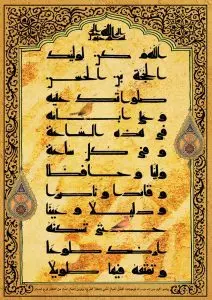 اللهم كن لوليك
الحجة بن الحسن
صلواتك عليه
و على آبائه
في هذه الساعة
و في كل ساعة
وليا و حافظا
و قائدا و ناصرا
و دليلا و عينا
حتى تسكنه
أرضك طوعا
و تمتعه فيها طويلا